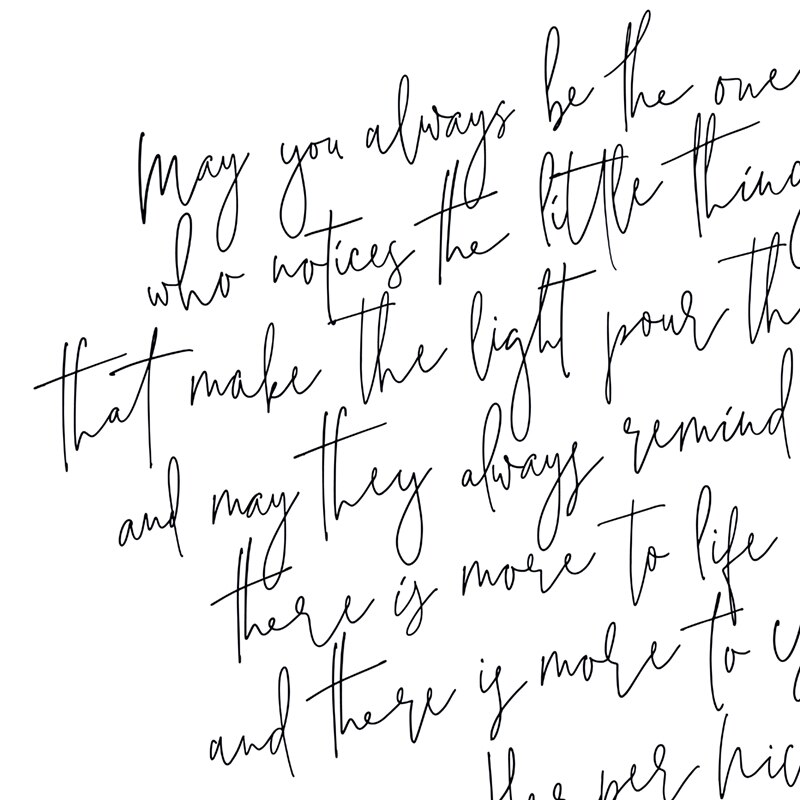 May you always be the one
who notices the little thing
that make the light pour th
and may they always remind
there is more to life
and there is more to y